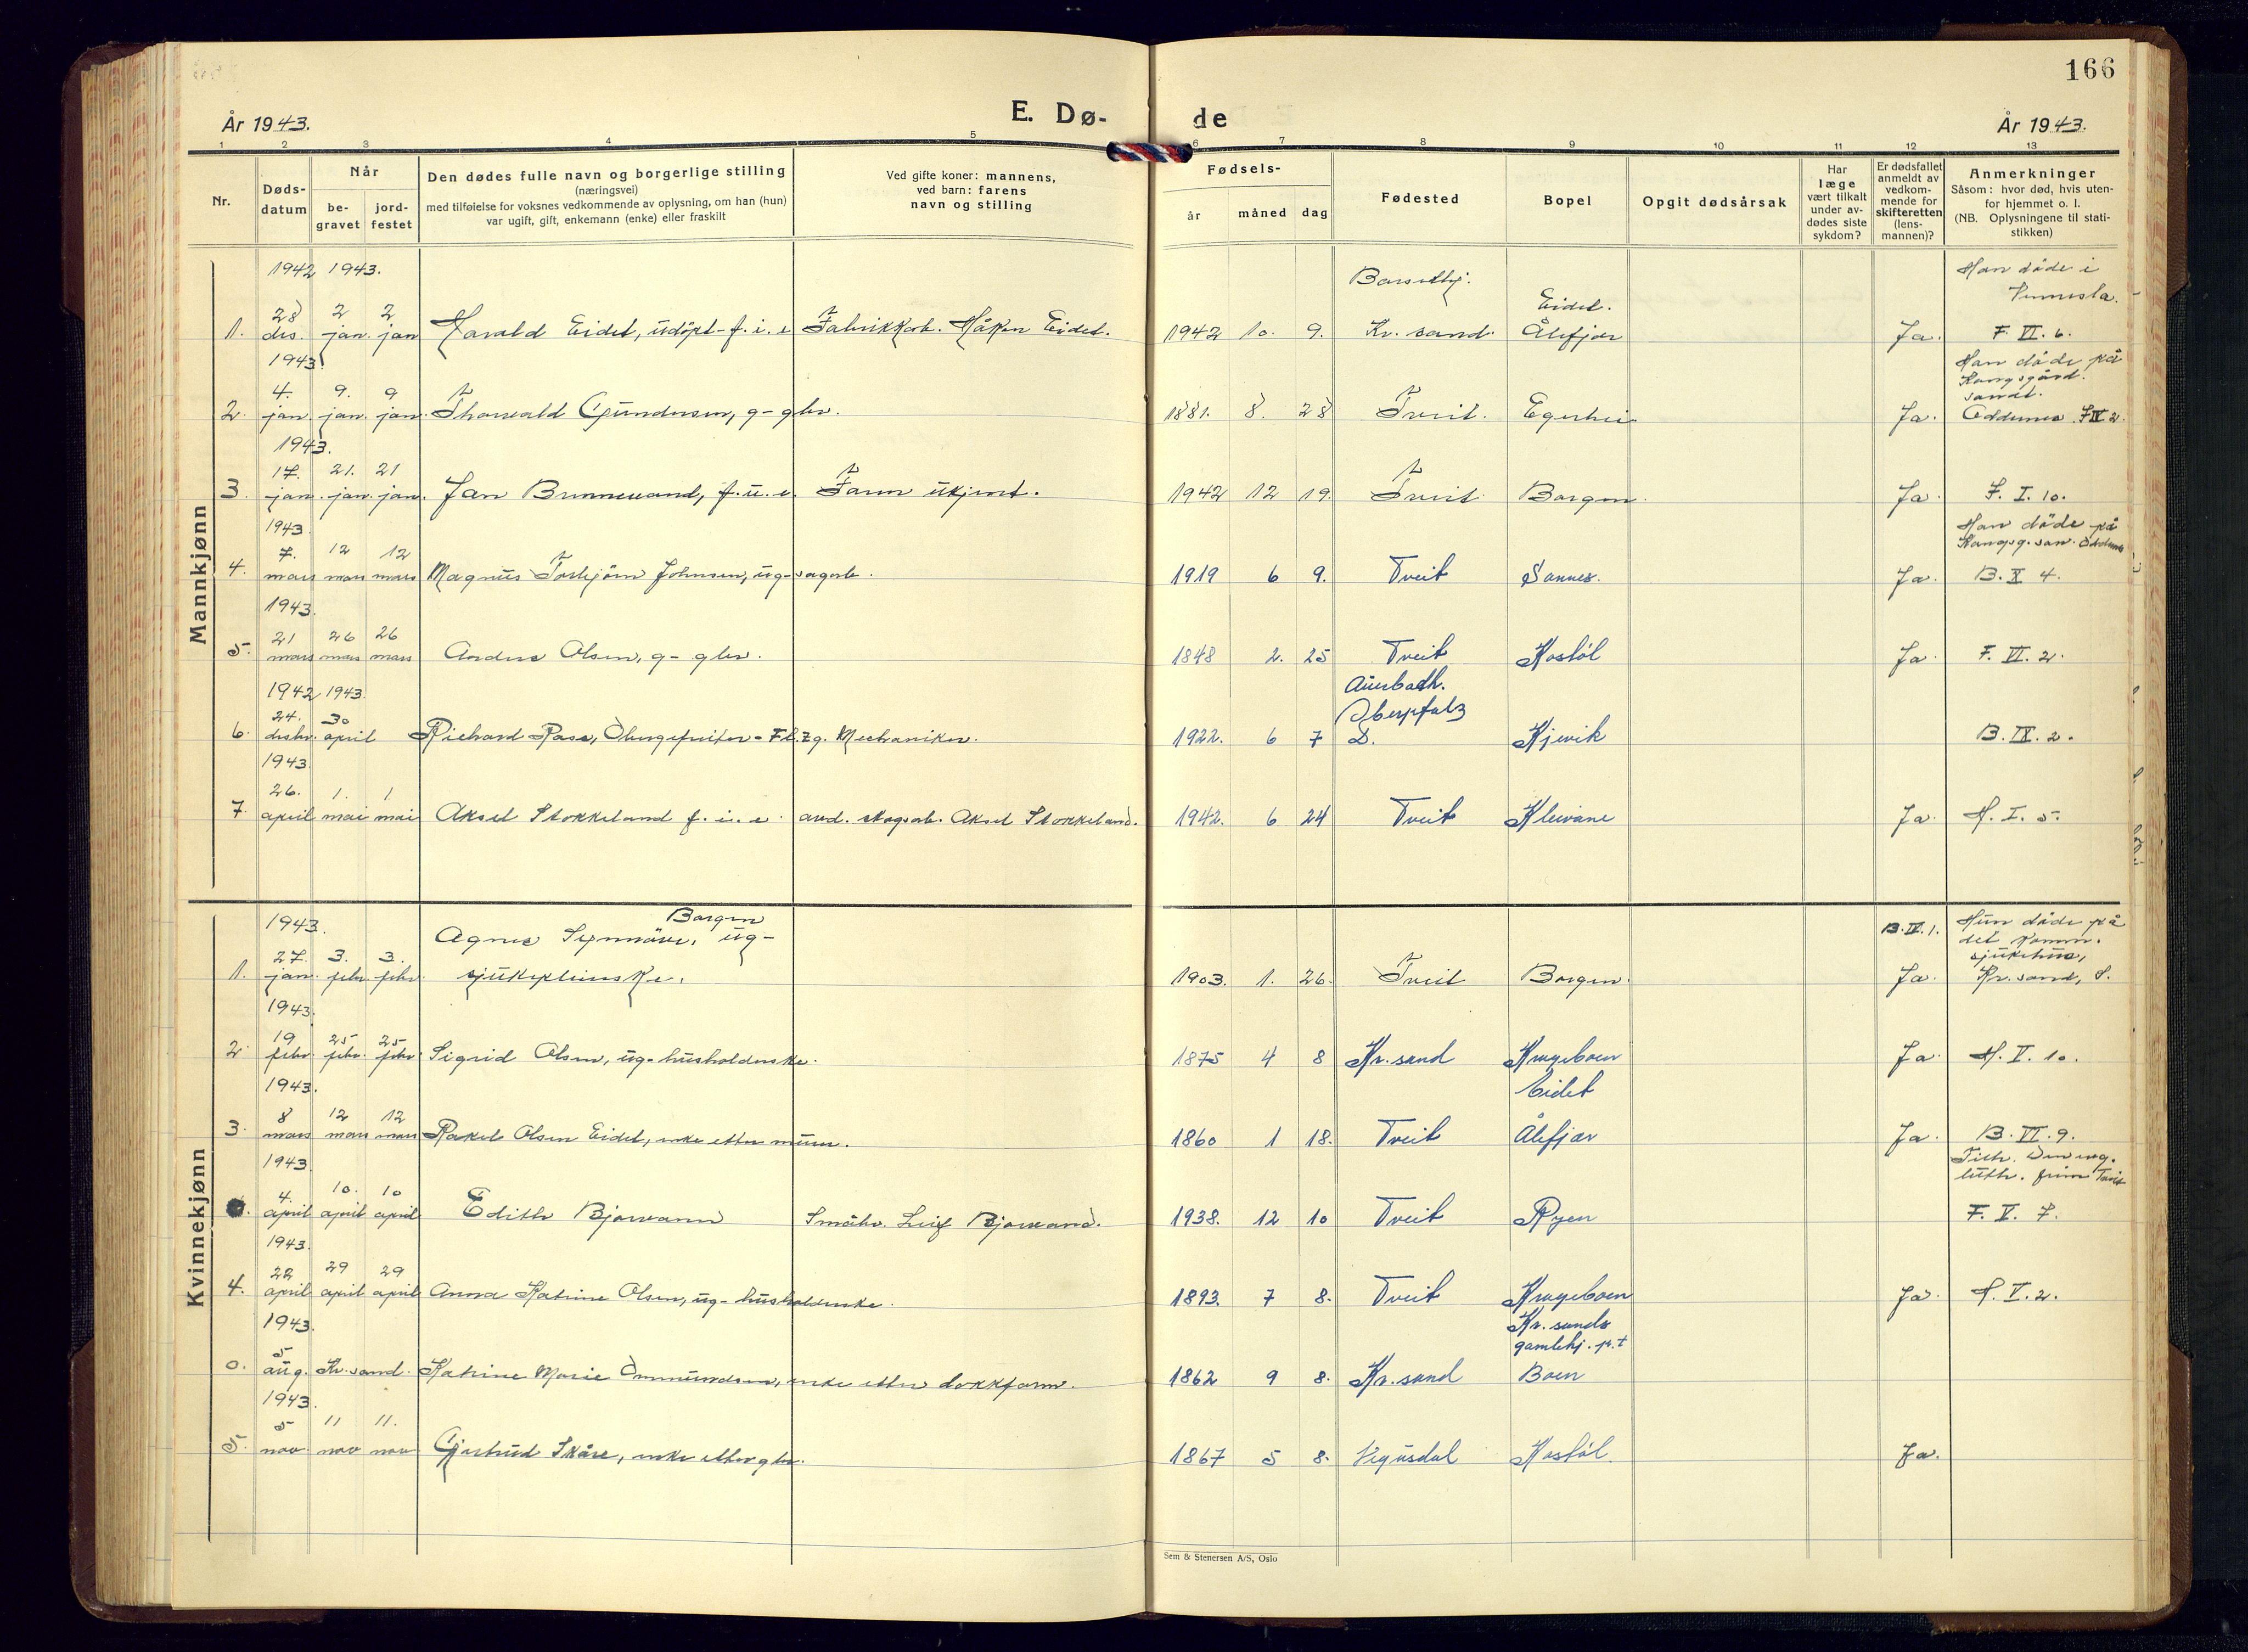 166
År 1943.
E. Dø-
de
År 1943.
1 2 3 4 5 6 7 8 9 10 11 12 13
Nr.
Døds-
datum
Når
be-
gravet
jord-
festet
Den dødes fulle navn og borgerlige stilling
(næringsvei)
med tilføielse for voksnes vedkommende av oplysning, om han (hun)
var ugift, gift, enkemann (enke) eller fraskilt
Ved gifte koner: mannens,
ved barn: farens
navn og stilling
Fødsels-
år måned dag
Fødested
Bopel
Opgit dødsårsak
Har
læge
vært tilkalt
under av-
dødes siste
sykdom?
Er dødsfallet
anmeldt av
vedkom-
mende for
skifteretten
(lens-
mannen)?
Anmerkninger
Såsom: hvor død, hvis uten-
for hjemmet o. l.
(NB. Oplysningene til stati-
stikken)
Mannkjønn
1942 1943. Han døde i
28 2 2 Eidet. Vennesla.
1. des. jan. jan Harald Eidet, udøpt f. i. e Fabrikkarb. Håkon Eidet. 1942 10. 9. Kr. sand. Ålefjær Ja. F. VI. 6.
1943 Han døde på
4. 9. 9 Kongsgård.
2. jan. jan. jan. Thorvald Gundersen, g- gbr. 1881. 8. 28 Tveit. Egerhei Ja. Oddernes. F IX 2.
1943.
17. 21. 21
3. jan. jan. jan. Jan Brunnevand, f. u. e. Faren ukjent. 1942 12 19. Tveit. Borgen. Ja. F. I. 10.
1943. Han døde på
7. 12 12
4. mars mars mars Magnus Torbjörn Johnsen, ug- sagarb. 1919 6 9. Tveit Sannes. Ja. B. X 4.
1943.
21 26 26
5. mars mars mars Andrea Olsen, g- gbr. 1848 2. 25 Tveit Kostöl Ja. F. VI. 2.
1942 1943. Auerbach.
24. 30 Oberpfalz
6. desbr. april Richard Rass, Obergefreiter - Flzg. Mechaniker. 1922. 6 7 D. Kjevik B. IX. 2.
1943
26. 1. 1
7. april mai mai Aksel Stokkeland f. i. e. arb. skogsarb. Aksel Stokkeland. 1942. 6 24 Tveit Kleivane Ja. H. I. 5.
Kvinnekjønn
1943. Borgen B. IV. 1. Hun døde på
27. 3. 3. Agnes Synnöve, ug- det komm.
sjukehus,
1. jan. febr. febr. sjukepleierske. 1903. 1. 26. Tveit Borgen. Ja. Kr. sand, S.
1943.
19 25 25
2. febr. febr. febr. Sigrid Olsen, ug- husholderske. 1875 4 8 Kr. sand Krageboen Ja. H. I. 10.
1943.
8 12 12 Eidet
3. mars mars mars Rakel Olsen Eidet, enke etter murer. 1860 1 18. Tveit Ålefjær Ja. B. VI. 9.
1943.
4. 10. 10 luth. frim. Tveit
april april april Edith Bjorvann Småbr. Leif Bjorvand. 1938. 12 10 Tveit Ryen F. V. 7.
1943.
22 29 29
4. april april april Anna Katrine Olsen, ug- husholderske. 1893. 7 8. Tveit Krageboen Ja. H. V. 2.
1943. Kr. sands
5 gamlehj. p.t
0. aug. Kr. sand. Katrine Marie Ommundsen, enke etter dokkform. 1862 9 8. Kr. sand Boen
1943.
5 11 11.
5. nov. nov nov Gjertrud Skåre, enke etter gbr. 1867 5 8. Vegusdal Kostöl. Ja.
Sem & Stenersen A/S, Oslo